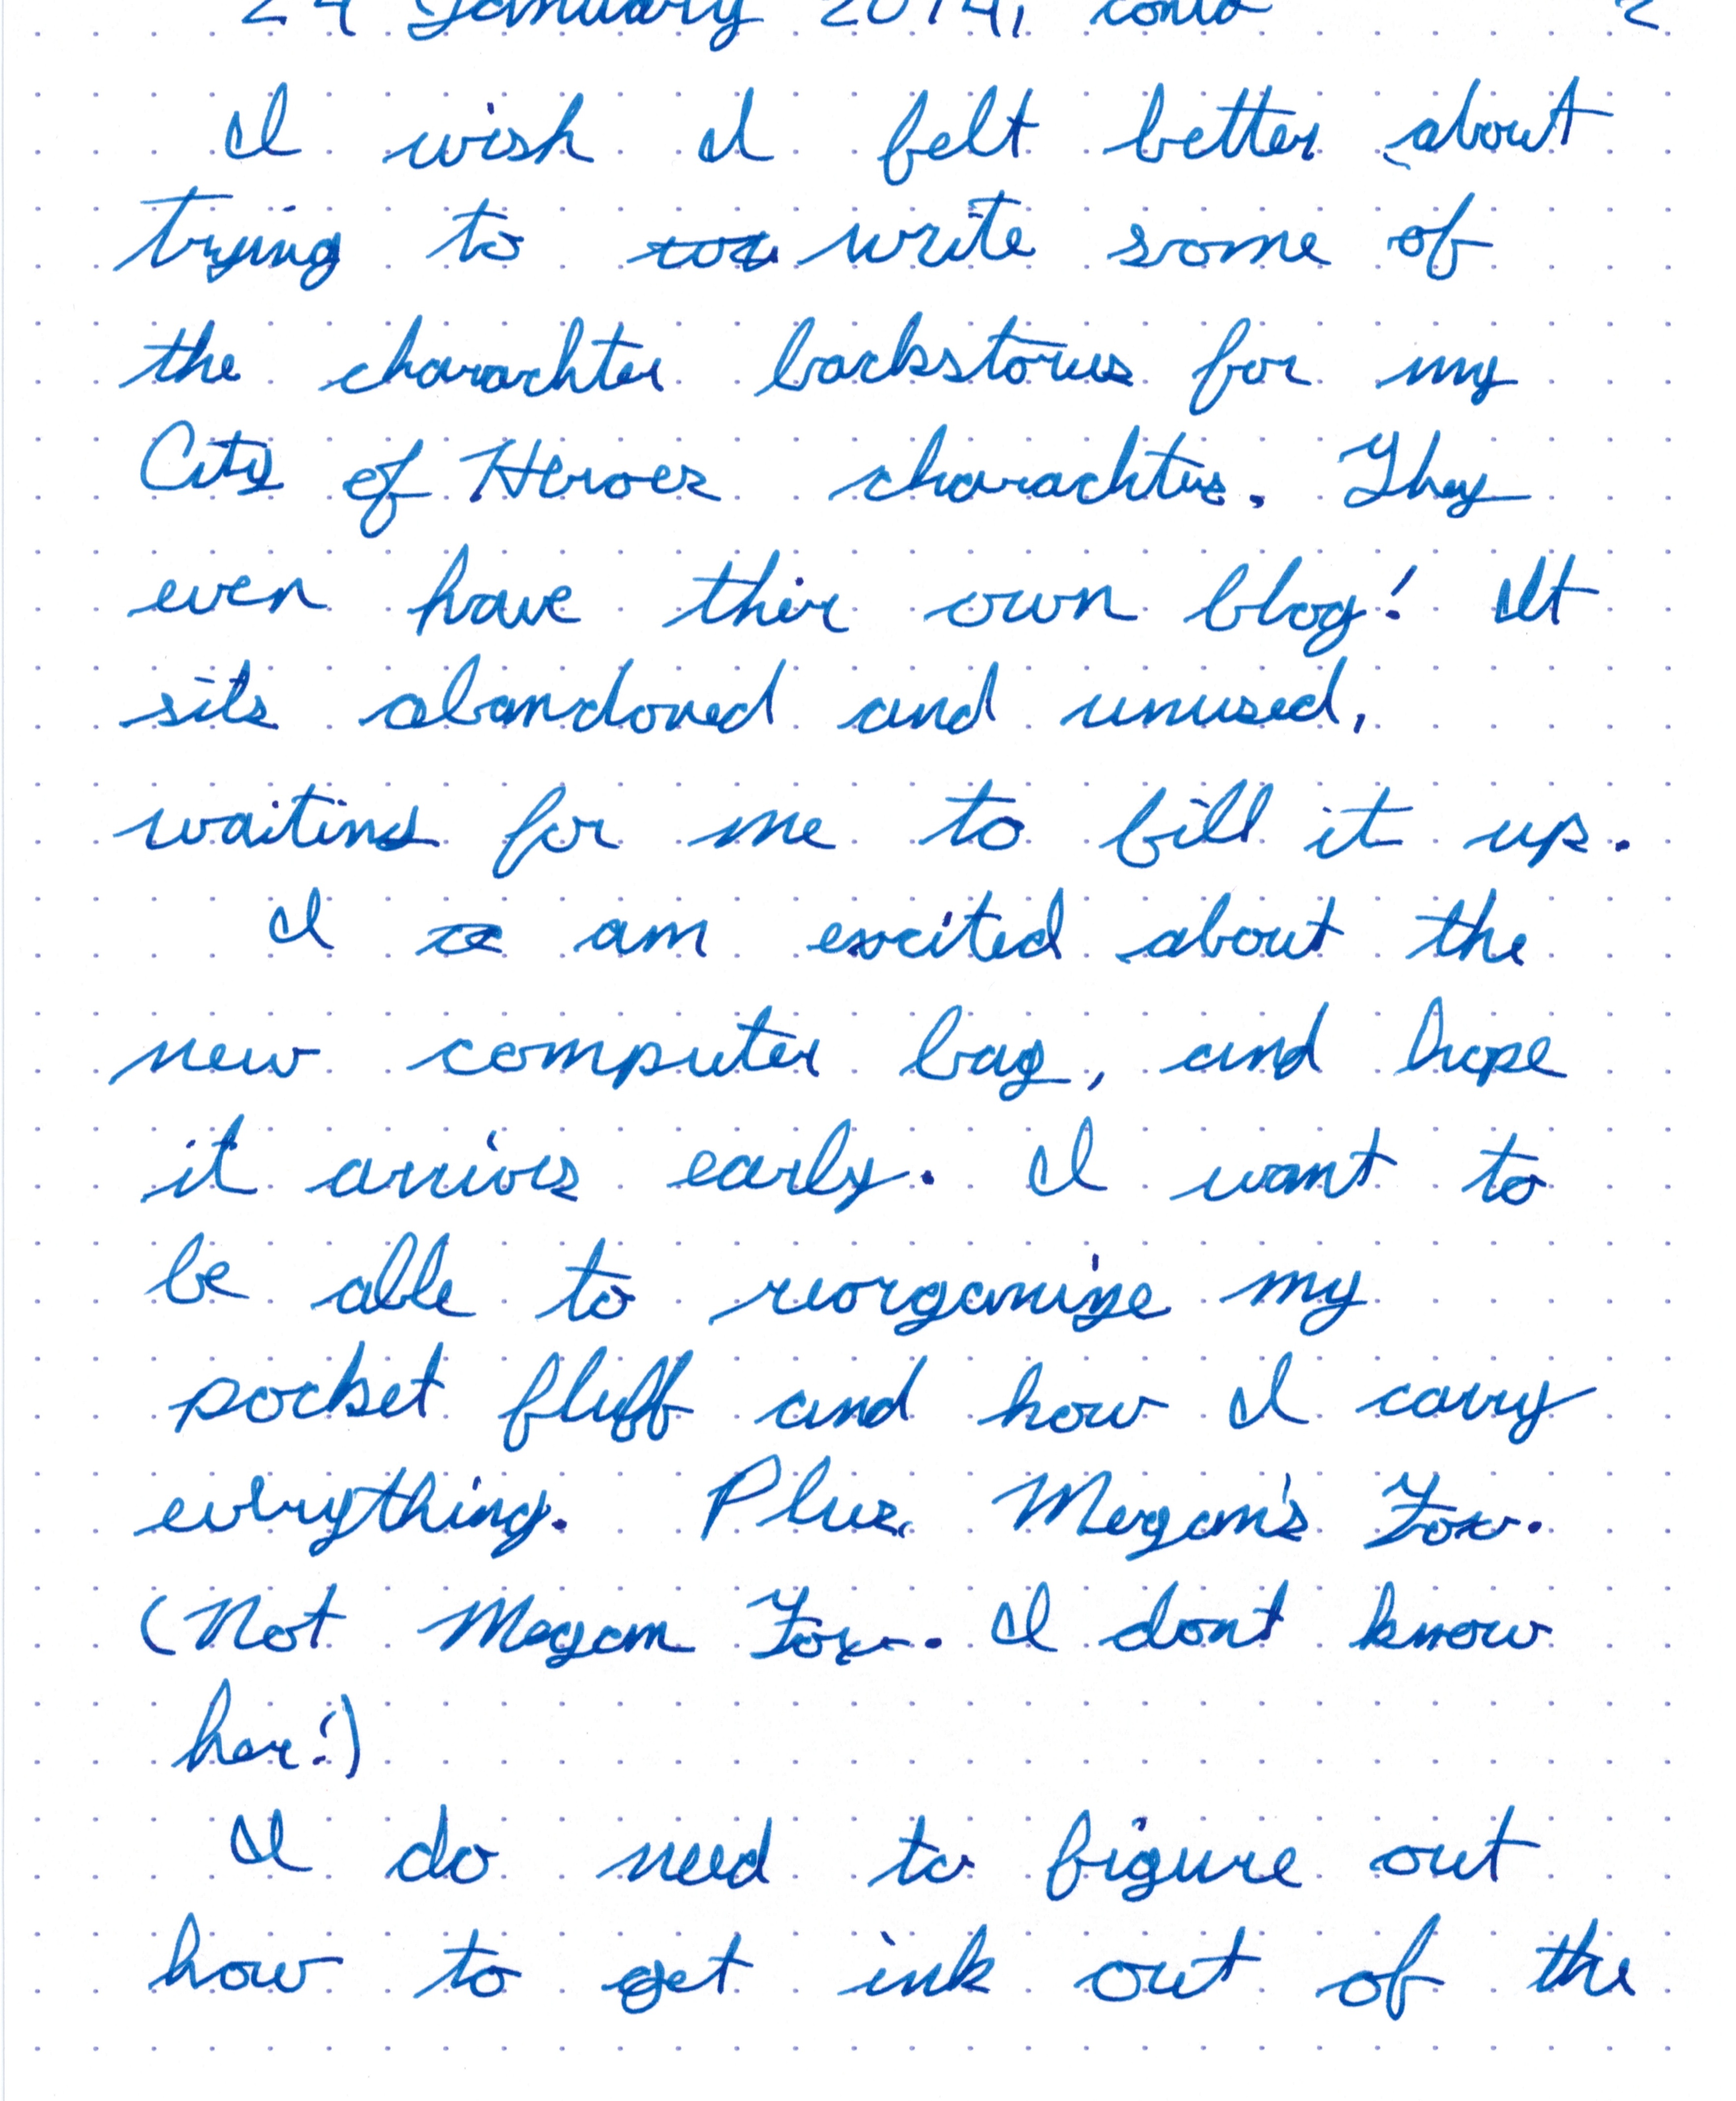 24 January 2014, contd 2
I wish I felt better about
trying to write some of
the charachter backstories for my
City of Heroes charachters. They
even have thier own blog! It
sits abandoned and unused,
waiting for me to fill it up.
I am excited about the
new computer bag, and hope
it arrives early. I want to
be able to reorganize my
pocket fluff and how I carry
everything. Plus, Megan's Fox.
(Not Megan Fox. I dont know
her!)
I do need to figure out
how to get ink out of the